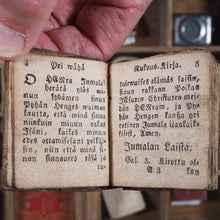 4 Pri wähä
O HERra Jumala!
herätä ylös mi-
nun sydämen sinun
Pyhän Henges woiman
kautta, että minä sinua
niinkuin minun rakas
Isäni, kaikes minun
edes ottamisesani etsi-
sin, että minä si-
nun suuruures siasa ja
Rukous-Kirja. 5
tulewaises elämäs saisin,
sinun rakkaan Poikas
JEsuxen Christuxen meidän
HERram, ja Pyhän
Hengen kansa yri
totinen Jumala ijankaik-
kisest, Amen.
Jumalan Laista.
Gal. 3. Kirottu ole
A 3 kon